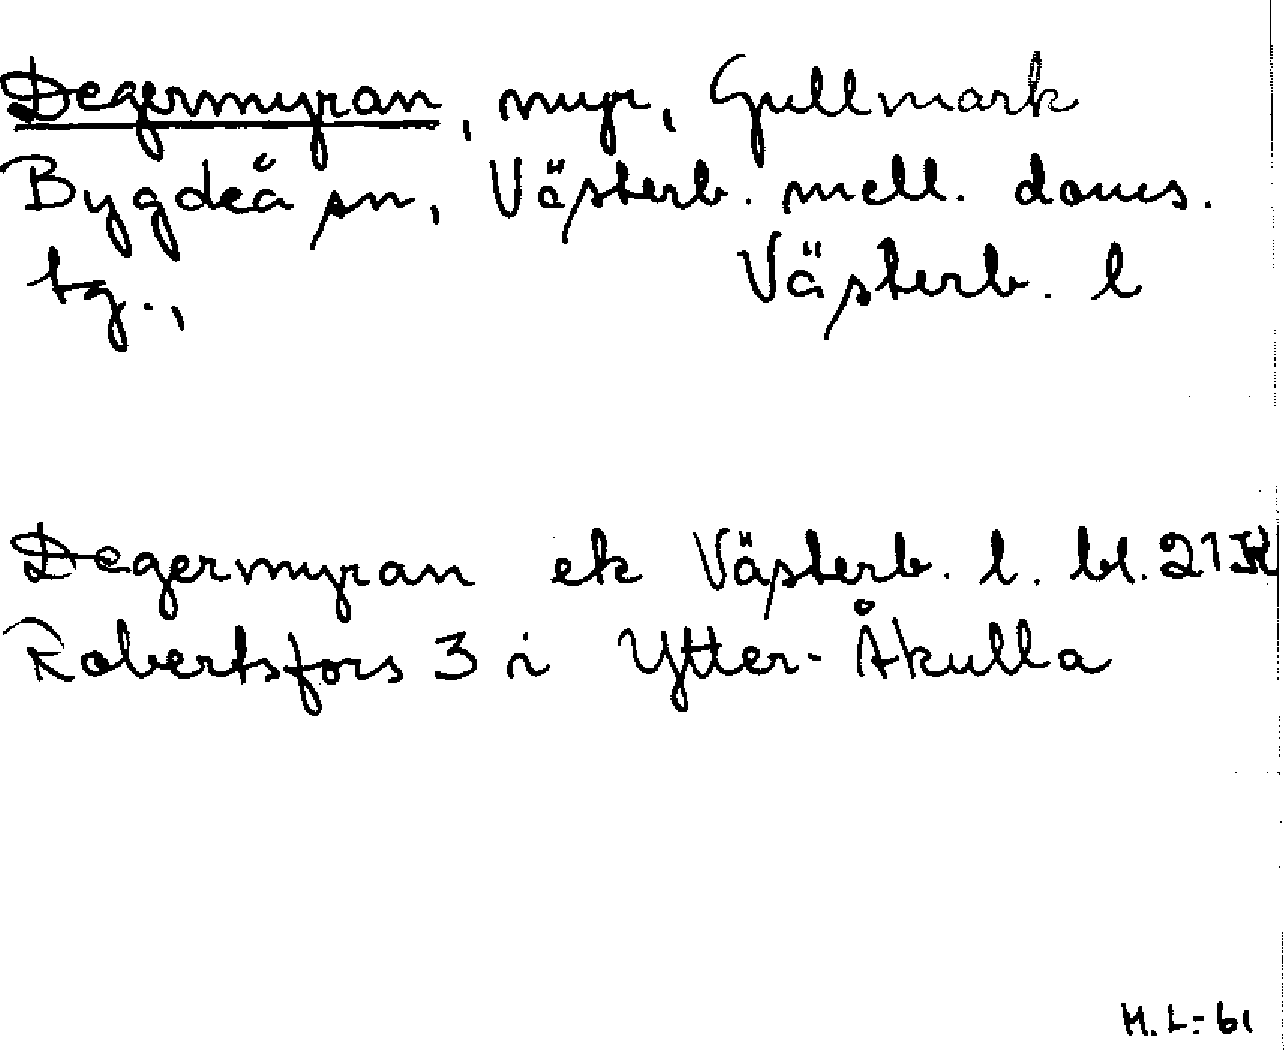 Degermyran, myr, Gullmark
Bygdeå sn, Västerb. mell. doms.
tg., Västerb. l
Degermyran ek Västerb. l. bl. 21 K
Robertsfors 3 i Ytter-Åkulla
H. L-61